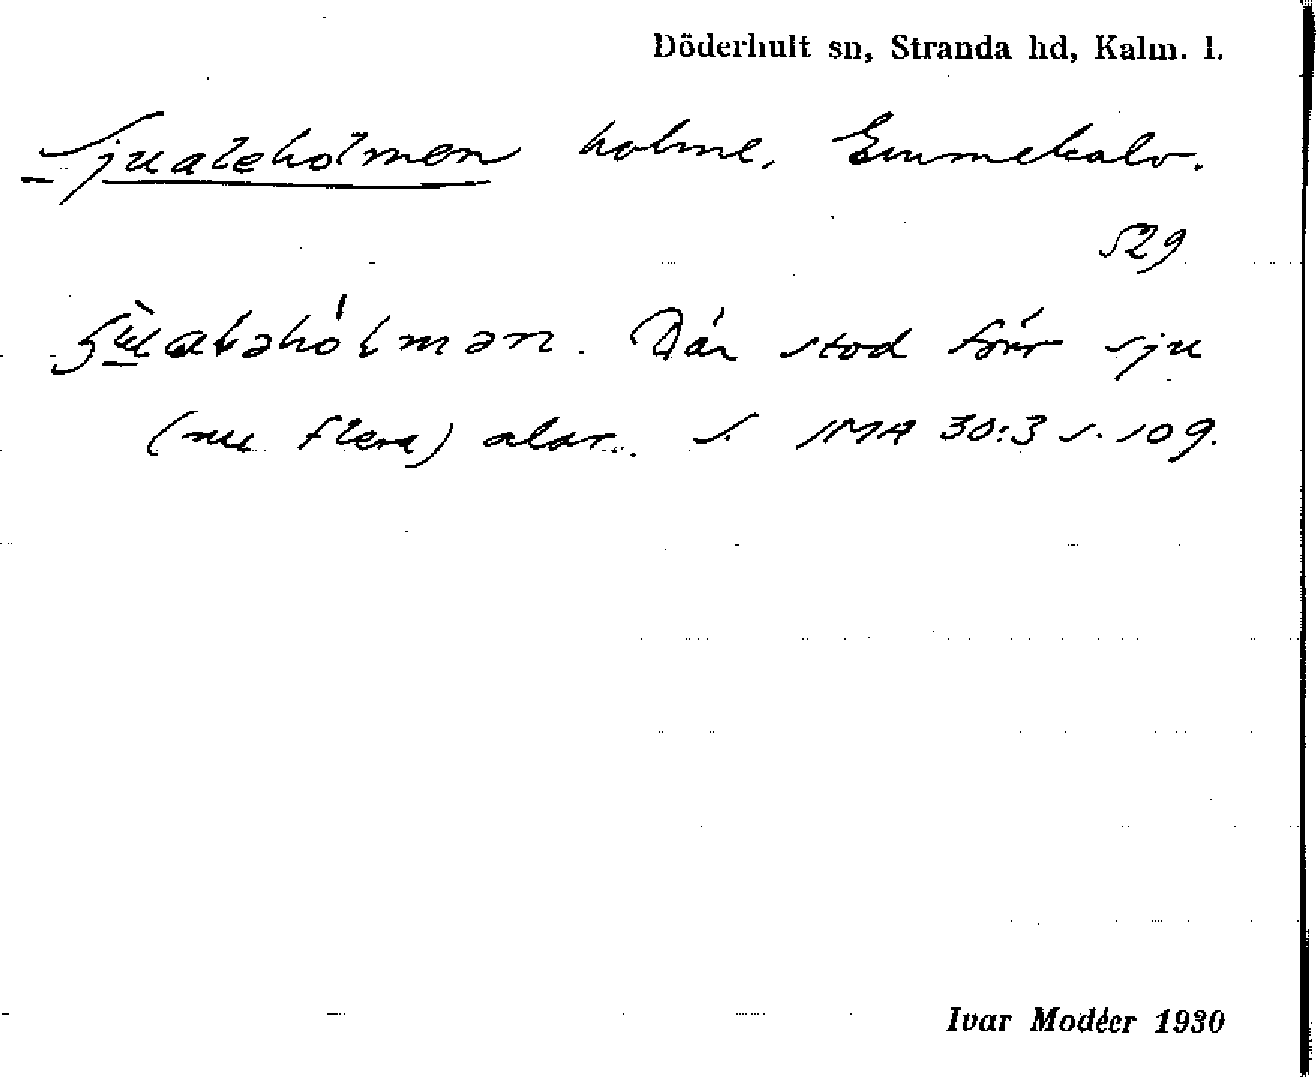 Döderhult sn, Stranda hd, Kalm. l.
Sjualeholmen holme, Emmekalv.
529
Där stod förr sju
(nu flera) alar. s. IMA 30:3 s. 109.
Ivar Modéer 1930